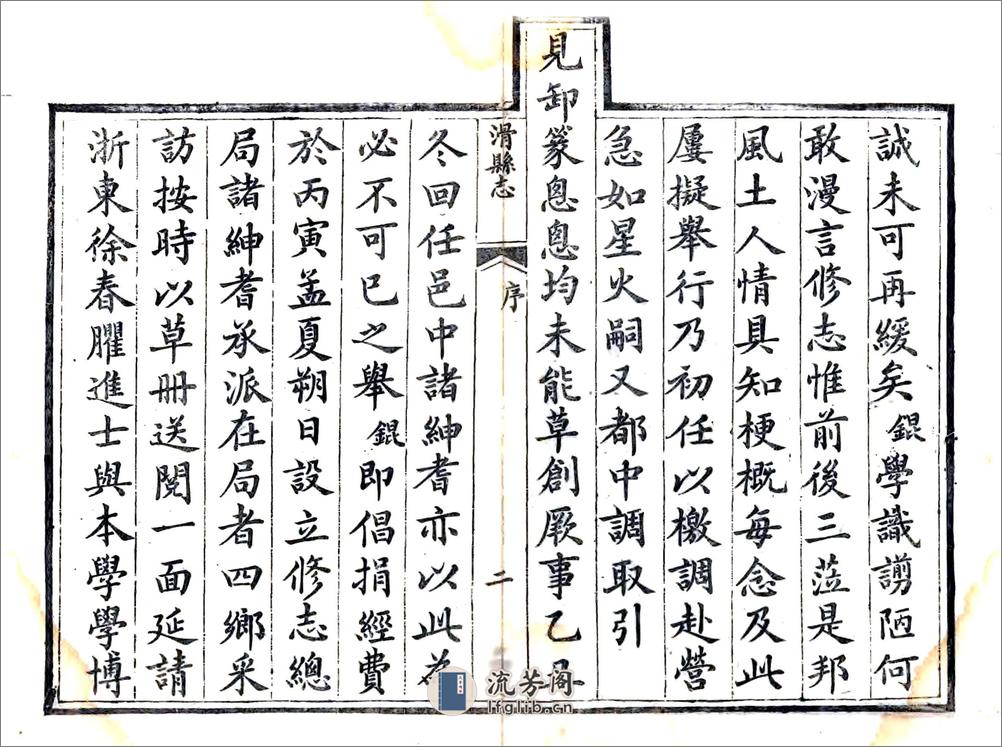 誠未可再緩矣錕學識謭陋何
敢漫言修志惟前後三蒞是邦
風土人情具知梗概每念及此
屢擬舉行乃初任以檄調赴營
急如星火嗣又都中調取引
見卸篆悤悤均未能草創厥事乙
滑縣志
序
二
冬回任邑中諸紳耆亦以此為
必不可已之舉錕即倡捐經費
於丙寅孟夏朔日設立修志總
局諸紳耆承派在局者四鄉采
訪按時以草冊送閱一面延請
浙東徐春臞進士與本學學博
流芳阁
lfglib.cn